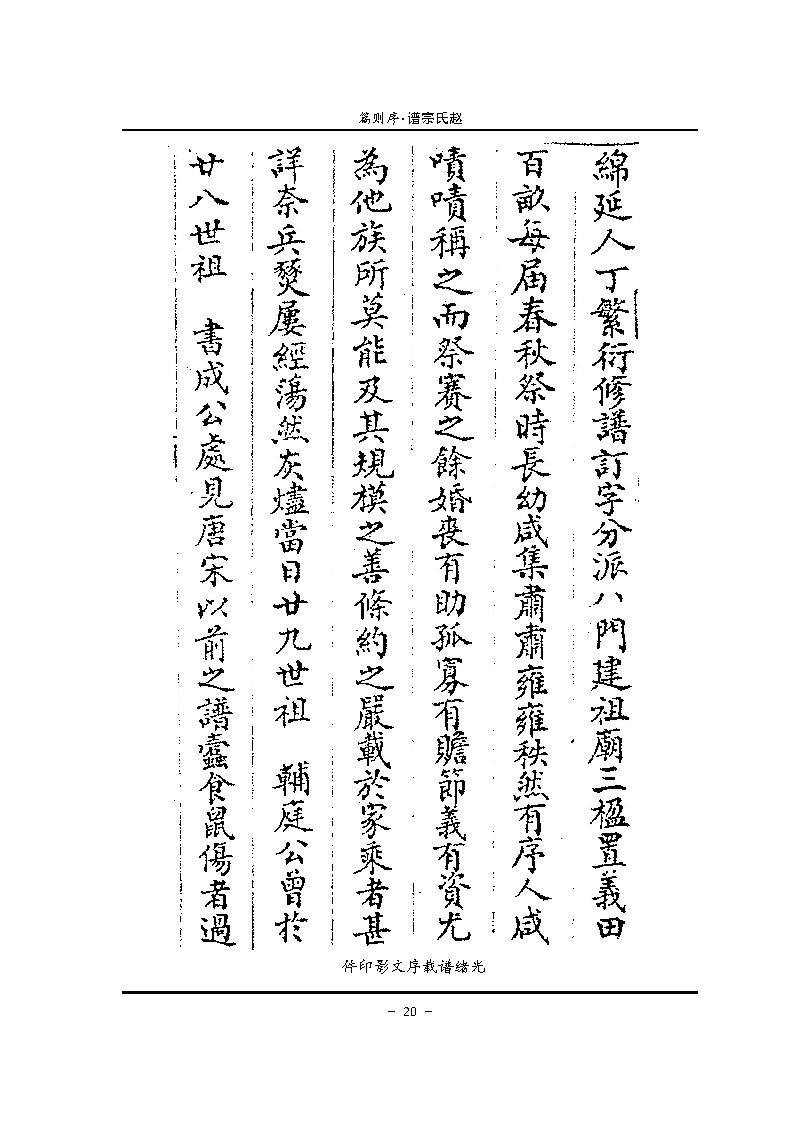 赵氏宗谱·序则篇
綿延人丁繁衍修譜訂字分派八門建祖廟三楹置義田
百畝每届春秋祭時長幼咸集肅肅雍雍秩然有序人咸
嘖嘖稱之而祭賽之餘婚丧有助孤寡有贍節義有資尤
為他族所莫能及其規模之善條約之嚴載於家乘者甚
詳奈兵燹屢經蕩然灰燼當日廿九世祖 輔庭公曾於
廿八世祖 書成公處見唐宋以前之譜蠹食鼠傷者過
光绪谱载序文影印件
- 20 -